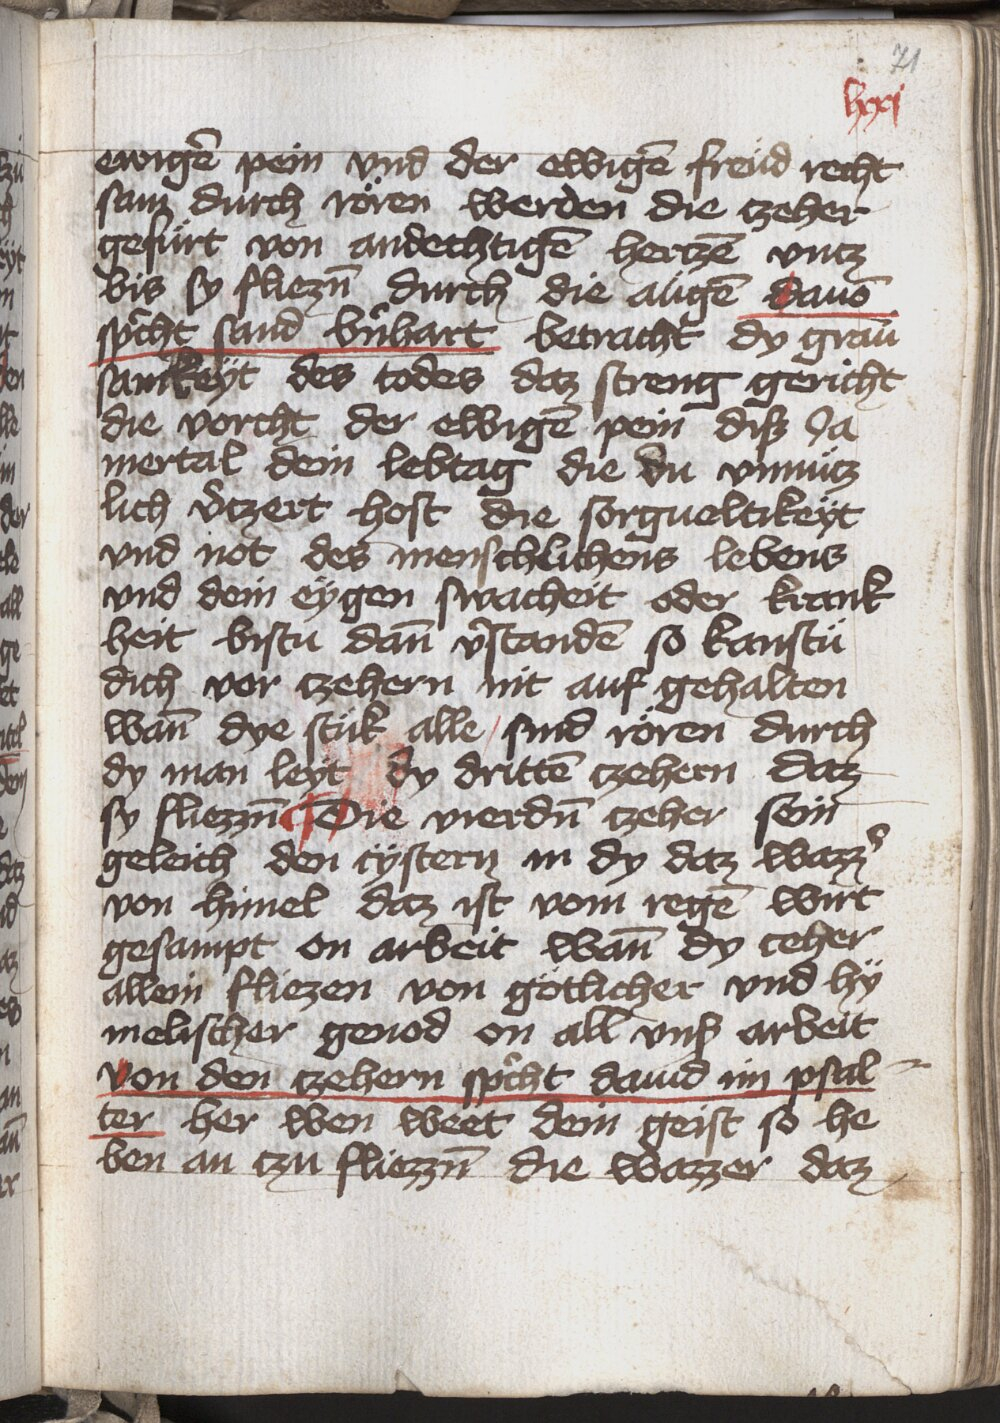 71
lxxj
ewigē pein vnd der ewigē freüd recht
sam durch rören werden die czeher
gefürt von andechtigē hertzē vncz
bis sy fliezn̄ durch die augē dauō
sp̄cht sand bn̄hart betracht dy grau
samkeÿt des todes daz streng gericht
die vorcht der ewigē pein diß Ja
mertal dein lebtag die du vnnücz
lich v̄czert host die sorgueltikeÿt
vnd not des menschlichens lebens
vnd dein eÿgen swacheit oder krank
heit bistu dan̄ v̄standē so kanstu
dich vor czehern nit auf gehalten
wan̄ dye stük alle sind rören durch
dy man leyt dy drittē czehern daz
sy fliezzn̄ Die vierdn̄ czeher sein
geleich den cÿstern in dy daz wazz̄
von himel daz ist vom regē wirt
gesampt on arbeit wan̄ dy ceher
allein fliezen von götlicher vnd hÿ
melischer genod on all vnß arbeit
von den czehern sp̄cht dauid im psal
ter her wen weet dein geist so he
ben an czu fliezzn̄ die wazzer daz